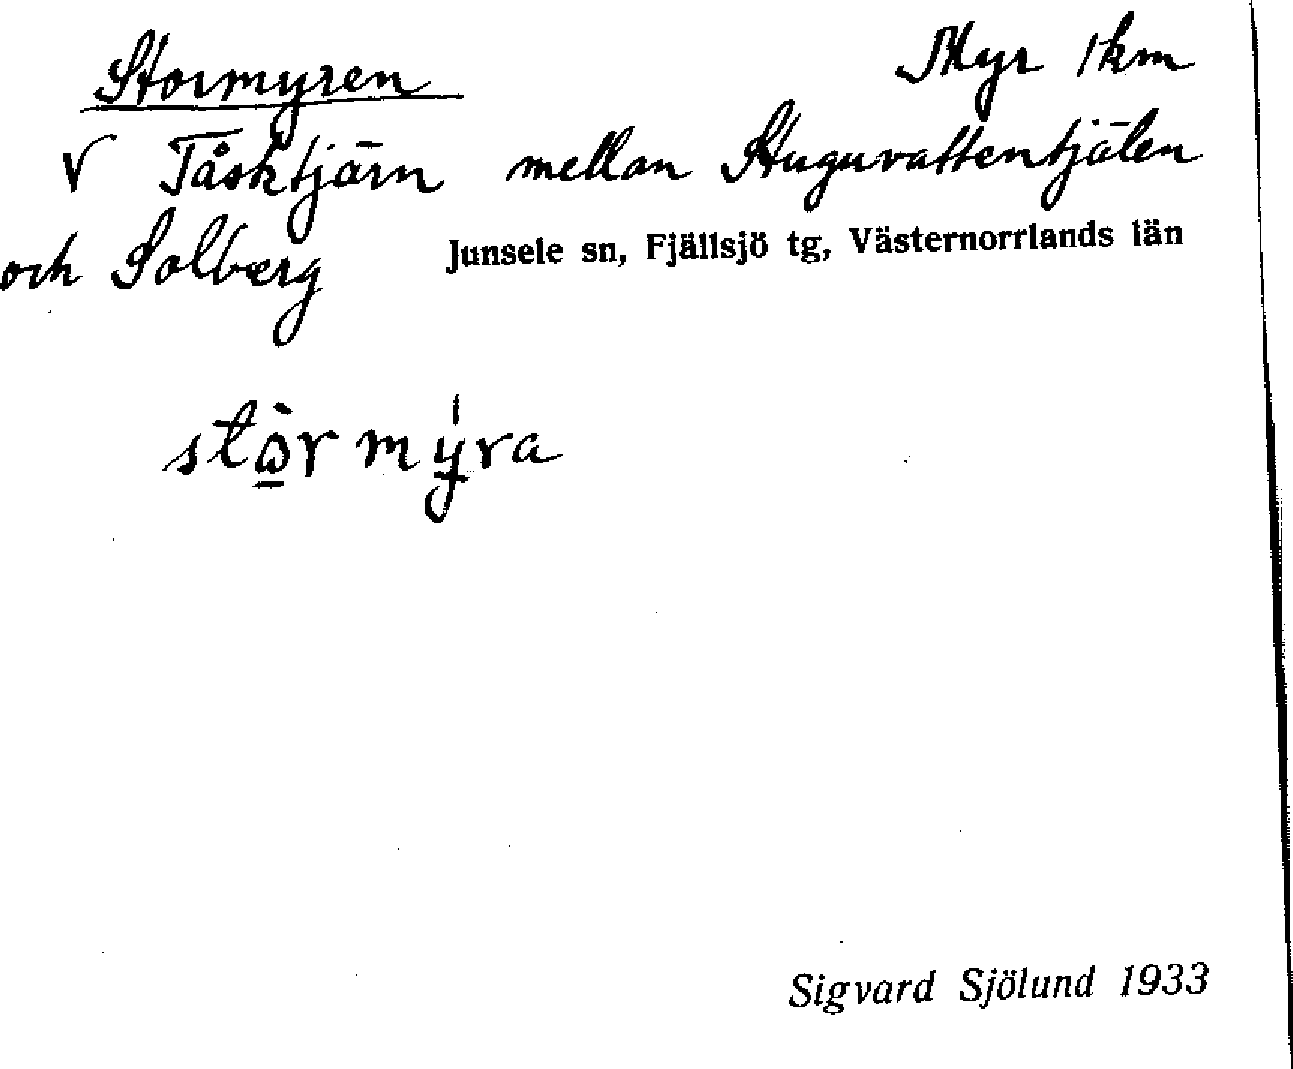 Stormyren Myr 1 km
V Tåsktjärn mellan Stuguvattentjälen
och Solberg Junsele sn, Fjällsjö tg, Västernorrlands län
stò̲r mýra
Sigvard Sjölund 1933